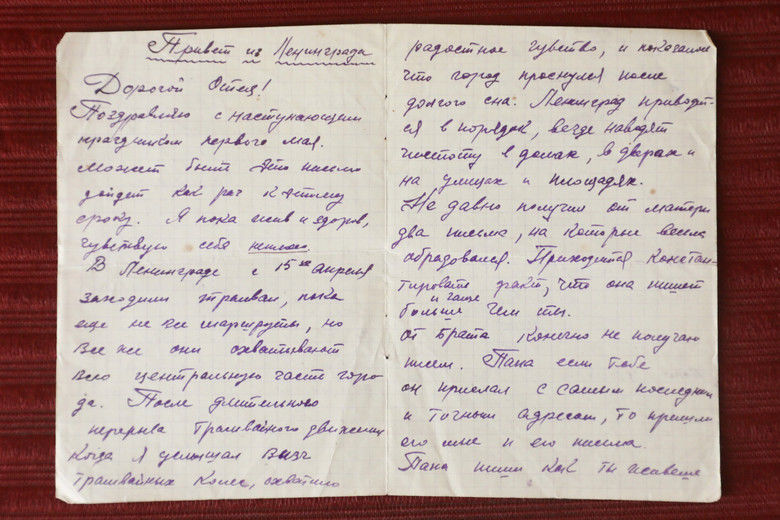 Привет из Ленинграда
Дорогой Отец!
Поздравляю с наступающим
праздником первого мая.
Может быть это письмо
дойдет как раз к этому
сроку. Я пока жив и здоров,
чувствую себя
В Ленинграде с 15го апреля
заходили трамваи, пока
еще не все маршруты, но
все же они охватывают
всю центральную часть горо
да. После длительного
перерыва трамвайного движения
когда я услышал визг
трамвайных колес, охватило
радостное чувство, и показалось
что город проснулся после
долгого сна. Ленинград приводит-
ся в порядок, везде наводят
чистоту в домах, в дворах и
на улицах и площадях.
Не давно получил от матери
два письма, на которые весьма
обрадовался. Приходится констан-
тировать факт, что она пишет
и чаще
больше чем ты.
От брата конечно не получаю
писем. Папа если тебе
он прислал с самым последним
и точным адресом, то пришли
его мне и его письма
Папа пиши как ты